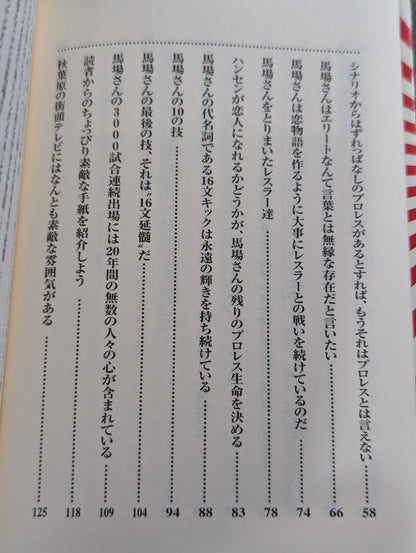 シナリオからはずれっぱなしのプロレスがあるとすれば、もうそれはプロレスとは言えない……58
馬場さんはエリートなんて言葉とは無縁な存在だと言いたい……66
馬場さんは恋物語を作るように大事にレスラーとの戦いを続けているのだ……74
馬場さんをとりまいたレスラー達……78
ハンセンが恋人になれるかどうかが、馬場さんの残りのプロレス生命を決める……83
馬場さんの代名詞である16文キックは永遠の輝きを持ち続けている……88
馬場さんの10の技……94
馬場さんの最後の技、それは〝16文延髄〟だ……104
馬場さんの3000試合連続出場には20年間の無数の人々の心が含まれている……109
読者からのちょっぴり素敵な手紙を紹介しよう……118
秋葉原の街頭テレビにはなんとも素敵な雰囲気がある……125